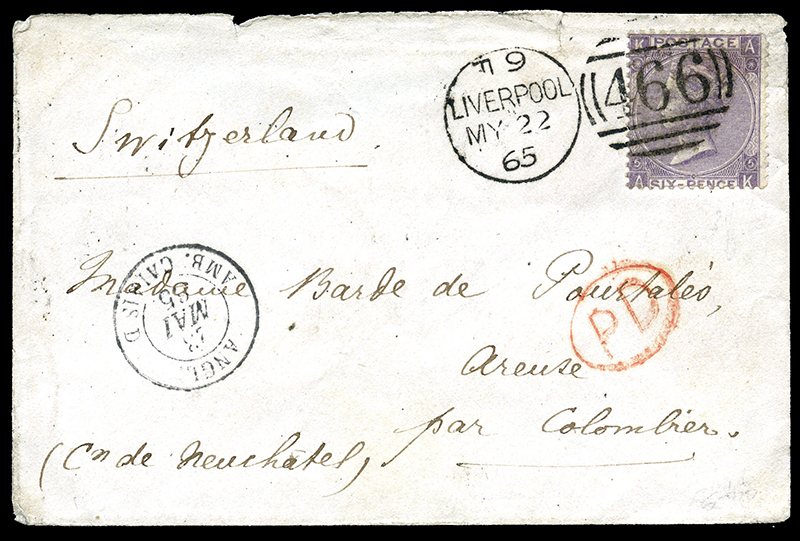 K POSTAGE A
466
A SIX-PENCE K
F 9
LIVERPOOL
MY 22
65
Switzerland
ANGL. AMB. CALAIS D
23
MAI
65
PD
Madame Barde de Pourtalès,
Areuse
par Colombier.
(Cn de Neuchâtel)